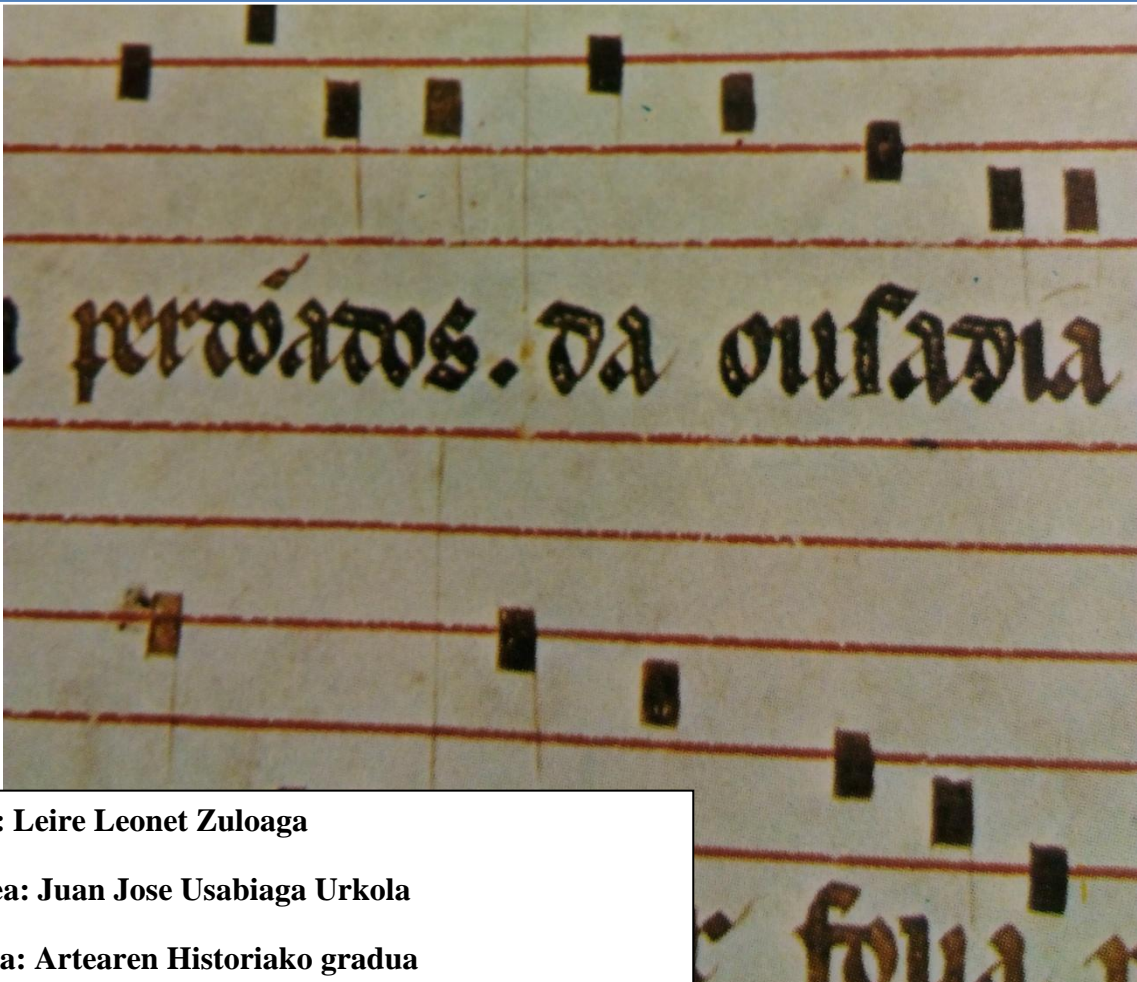 perdóados. da ouſadia
folia
: Leire Leonet Zuloaga
ea: Juan Jose Usabiaga Urkola
a: Artearen Historiako gradua